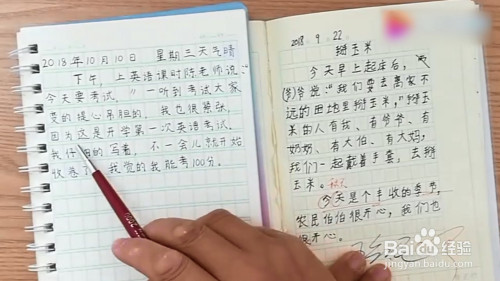 2018年10月10日 星期三天气晴
下午，上英语课时陈老师说：“
今天要考试，”一听到考试大家
变的提心吊胆的，我也很紧张，
因为这是开学第一次英语考试。
我仔细的写着，不一会儿就开始
收卷了，我觉的我能考100分。
2018.9.22
掰玉米
今天早上起床后，
爷爷说：“我们要去离家不
远的田地里掰玉米，”掰玉
米的人有我、有爷爷、有
奶奶、有大伯、有大妈，
我们一起戴着手套，去掰
玉米。
今天是个丰收的季节，
农民伯伯很开心，我们也
很开心。
Baidu 经验
jingyan.baidu.com